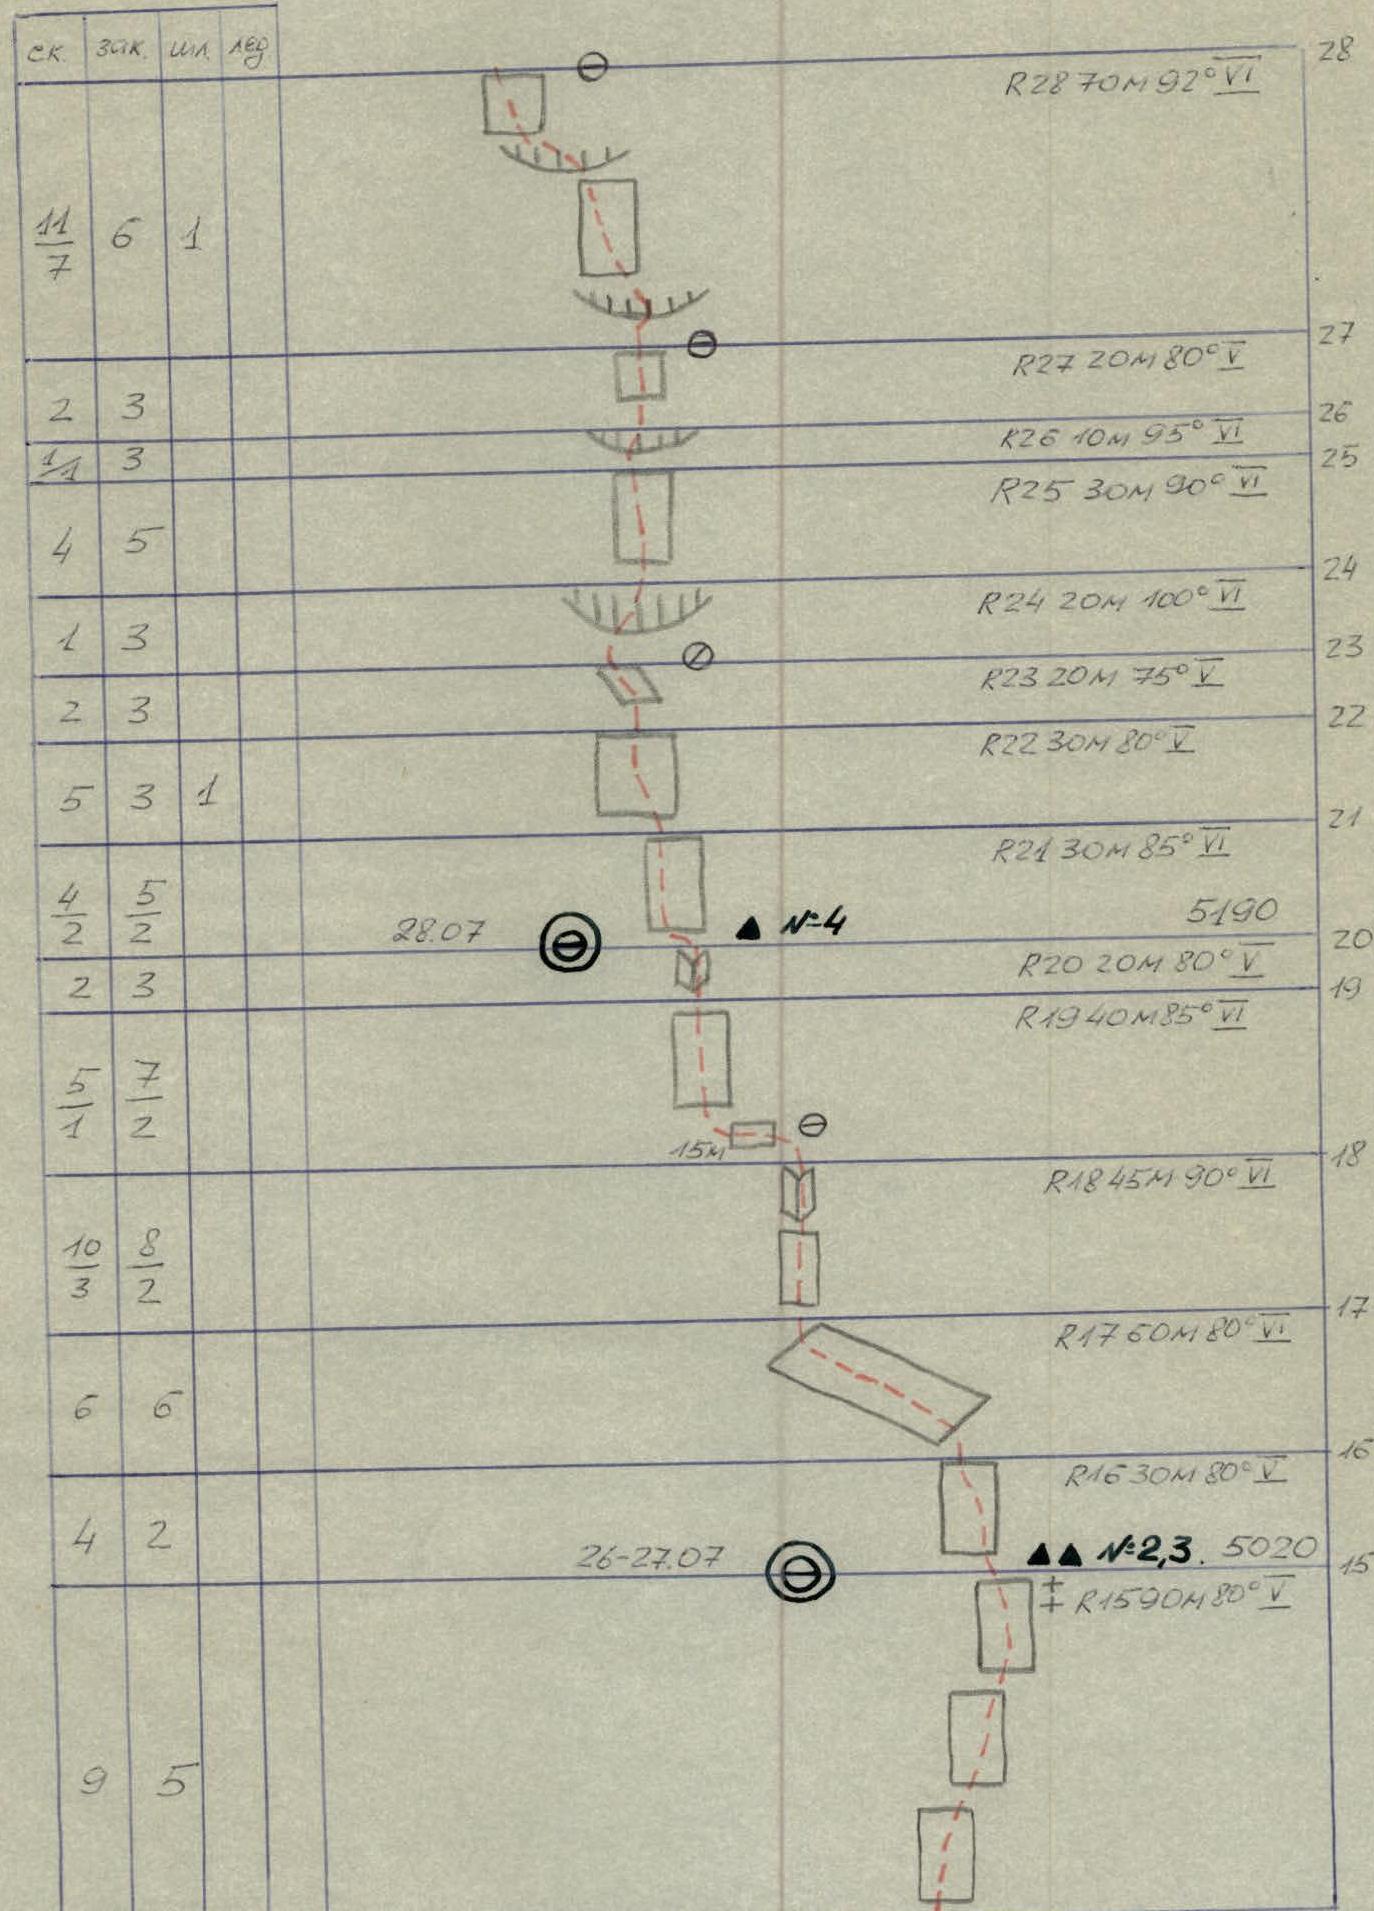 ск. зак. шл. лед.
28
R28 70м 92° VI
11/7 6 1
27
R27 20м 80° V
2 3
26
R26 10м 95° VI
1/1 3
25
R25 30м 90° VI
4 5
24
R24 20м 100° VI
1 3
23
R23 20м 75° V
2 3
22
R22 30м 80° V
5 3 1
21
R21 30м 85° VI
4/2 5/2
28.07 №4 5190
20
R20 20м 80° V
2 3
19
R19 40м 85° VI
5/1 7/2
15м
18
R18 45м 90° VI
10/3 8/2
17
R17 60м 80° VI
6 6
16
R16 30м 80° V
4 2
26-27.07 №2,3. 5020
15
R15 90м 80° V
9 5